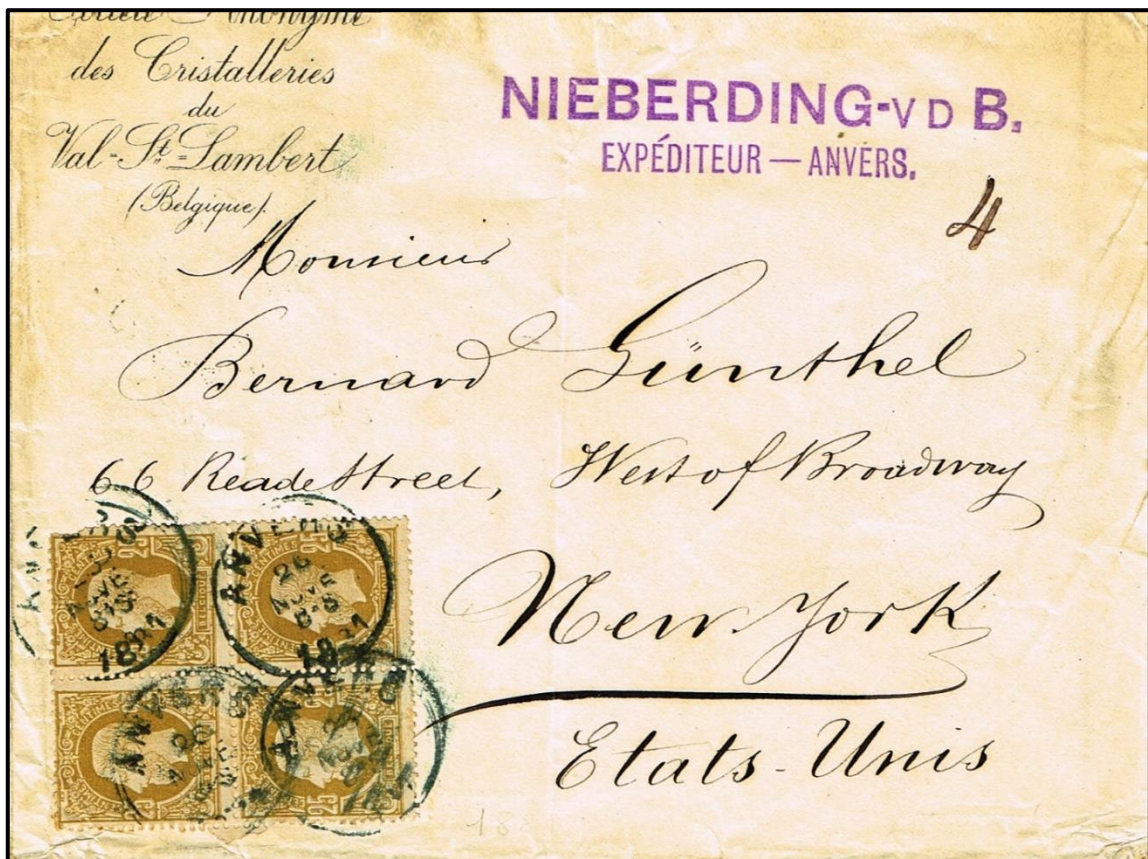 Société Anonyme
des Cristalleries
du
Val-St-Lambert
(Belgique)
NIEBERDING-V D B.
EXPÉDITEUR — ANVERS.
4
Monsieur
Bernard Günthel
66 Reade Street, West of Broadway
New-York
Etats-Unis
ANVERS
1881
ANVERS
26
NOVE
8-S
1881
25 CENTIMES 25
BELGIQUE
ANVERS
ANVERS
25